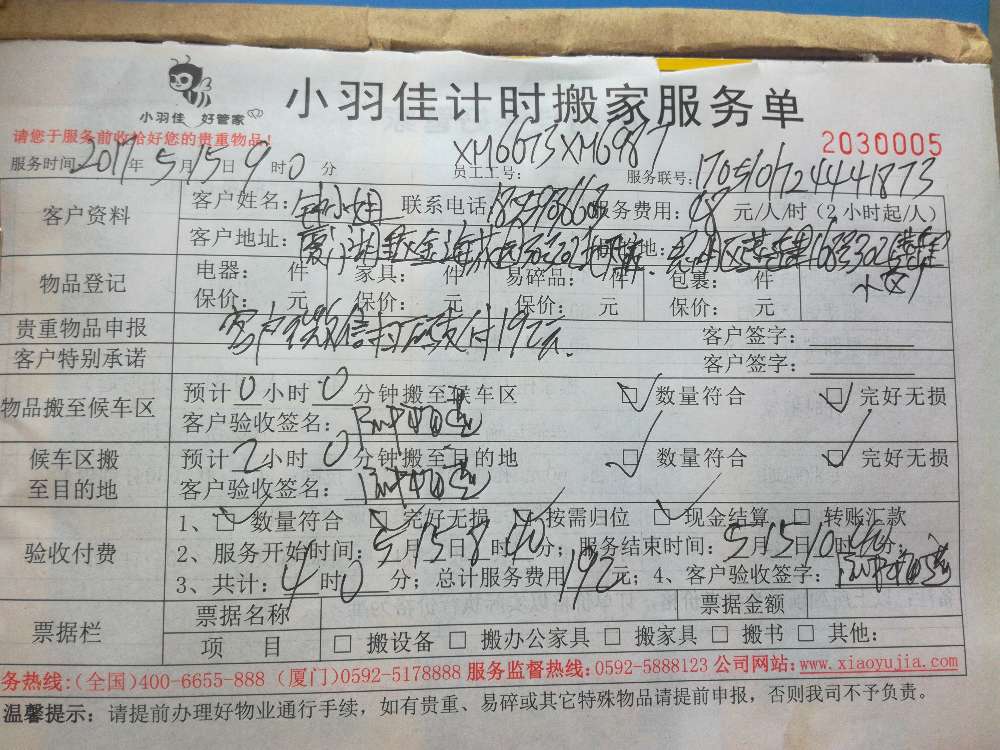 小羽佳 好管家
小羽佳计时搬家服务单
请您于服务前收拾好您的贵重物品！
2030005
服务时间：2017年5月15日9时0分 员工工号：XM6673XM6987 服务联号：
客户资料
客户姓名： 小姐 联系电话： 服务费用：48元/人/时（2小时起/人）
客户地址：
物品登记
电器： 件 家具： 件 易碎品： 件 包裹： 件
保价： 元 保价： 元 保价： 元 保价： 元
贵重物品申报 客户签字：
客户微信扫码支付192元.
客户特别承诺 客户签字：
物品搬至候车区
预计0小时0分钟搬至候车区 ☑ 数量符合 ☑ 完好无损
客户验收签名：
候车区搬至目的地
预计2小时0分钟搬至目的地 ☑ 数量符合 ☑ 完好无损
客户验收签名：
验收付费
1、☑ 数量符合 ☑ 完好无损 ☑ 按需归位 ☑ 现金结算 □ 转账汇款
2、服务开始时间：5月15日8时40分；服务结束时间：5月15日10时40分；
3、共计：4时0分；总计服务费用192元；4、客户验收签字：
票据栏
票据名称 票据金额
项 目 □ 搬设备 □ 搬办公家具 □ 搬家具 □ 搬书 □ 其他：
务热线：(全国)400-6655-888 (厦门)0592-5178888 服务监督热线：0592-5888123 公司网站：www.xiaoyujia.com
温馨提示：请提前办理好物业通行手续，如有贵重、易碎或其它特殊物品请提前申报，否则我司不予负责。